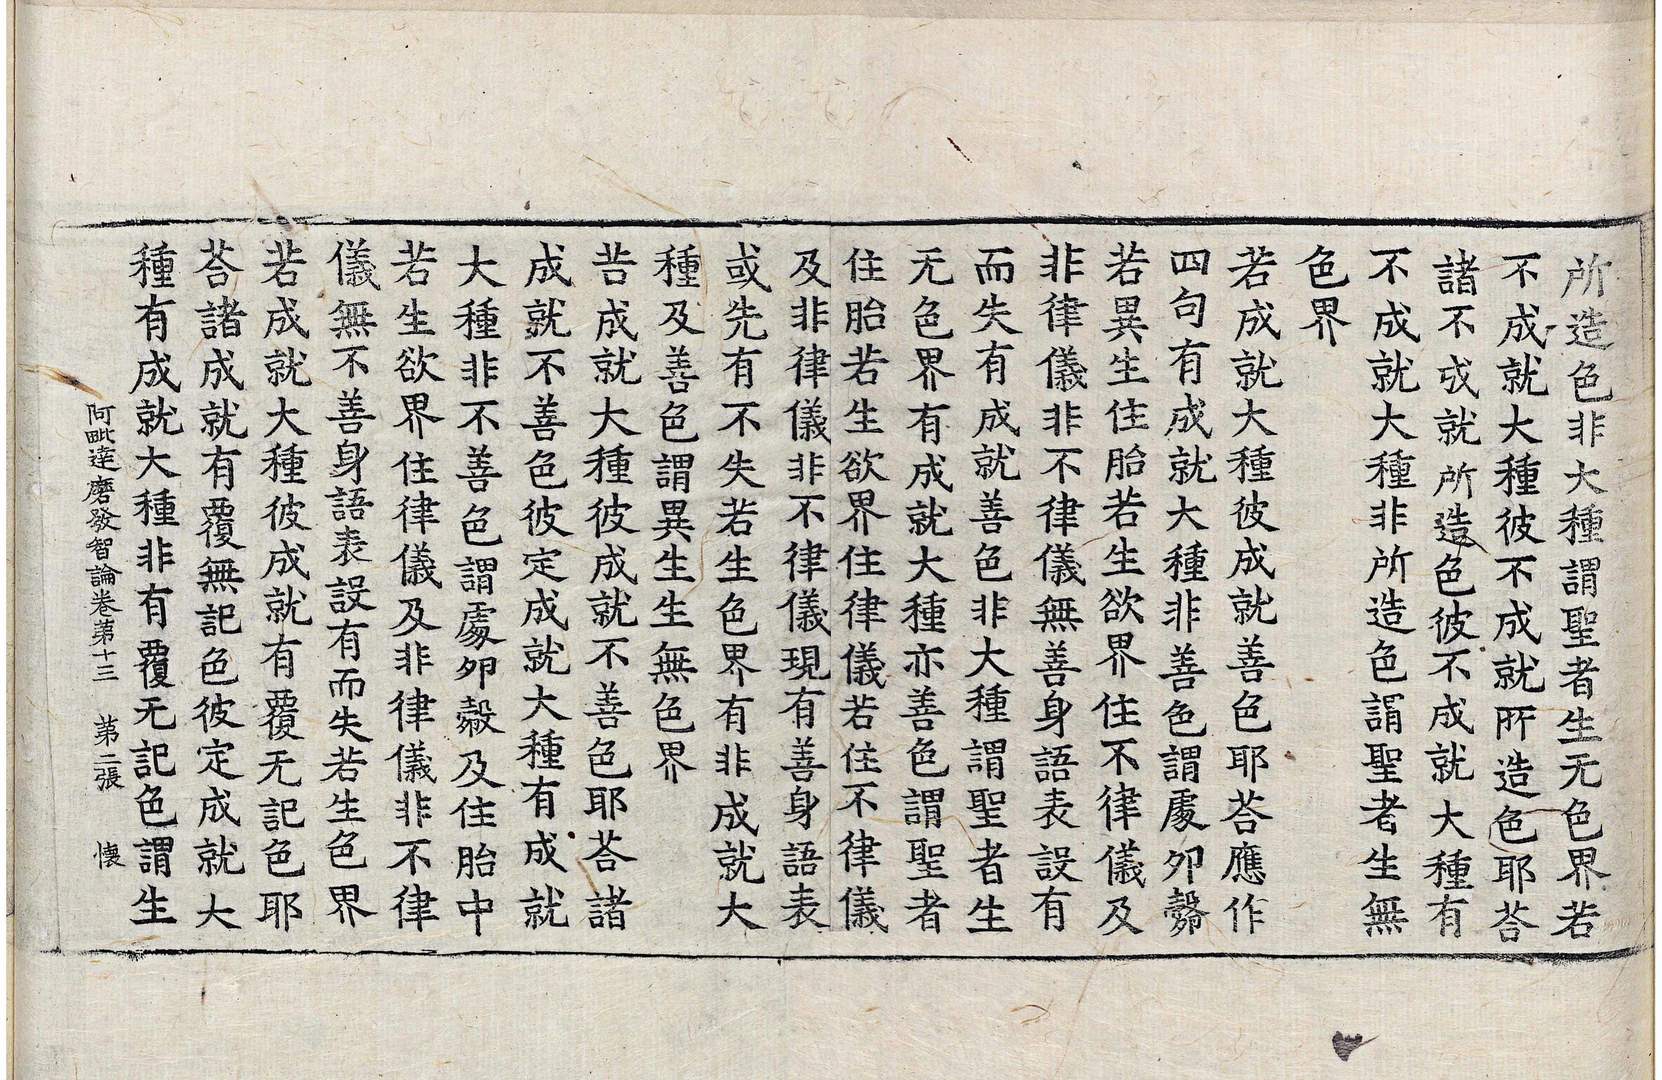 所造色非大種謂聖者生无色界若
不成就大種彼不成就所造色耶荅
諸不成就所造色彼不成就大種有
不成就大種非所造色謂聖者生無
色界
若成就大種彼成就善色耶荅應作
四句有成就大種非善色謂處卵㲉
若異生住胎若生欲界住不律儀及
非律儀非不律儀無善身語表設有
而失有成就善色非大種謂聖者生
无色界有成就大種亦善色謂聖者
住胎若生欲界住律儀若住不律儀
及非律儀非不律儀現有善身語表
或先有不失若生色界有非成就大
種及善色謂異生生無色界
若成就大種彼成就不善色耶荅諸
成就不善色彼定成就大種有成就
大種非不善色謂處卵㲉及住胎中
若生欲界住律儀及非律儀非不律
儀無不善身語表設有而失若生色界
若成就大種彼成就有覆无記色耶
荅諸成就有覆無記色彼定成就大
種有成就大種非有覆无記色謂生
阿毗達磨發智論卷第十三 第二張 懷